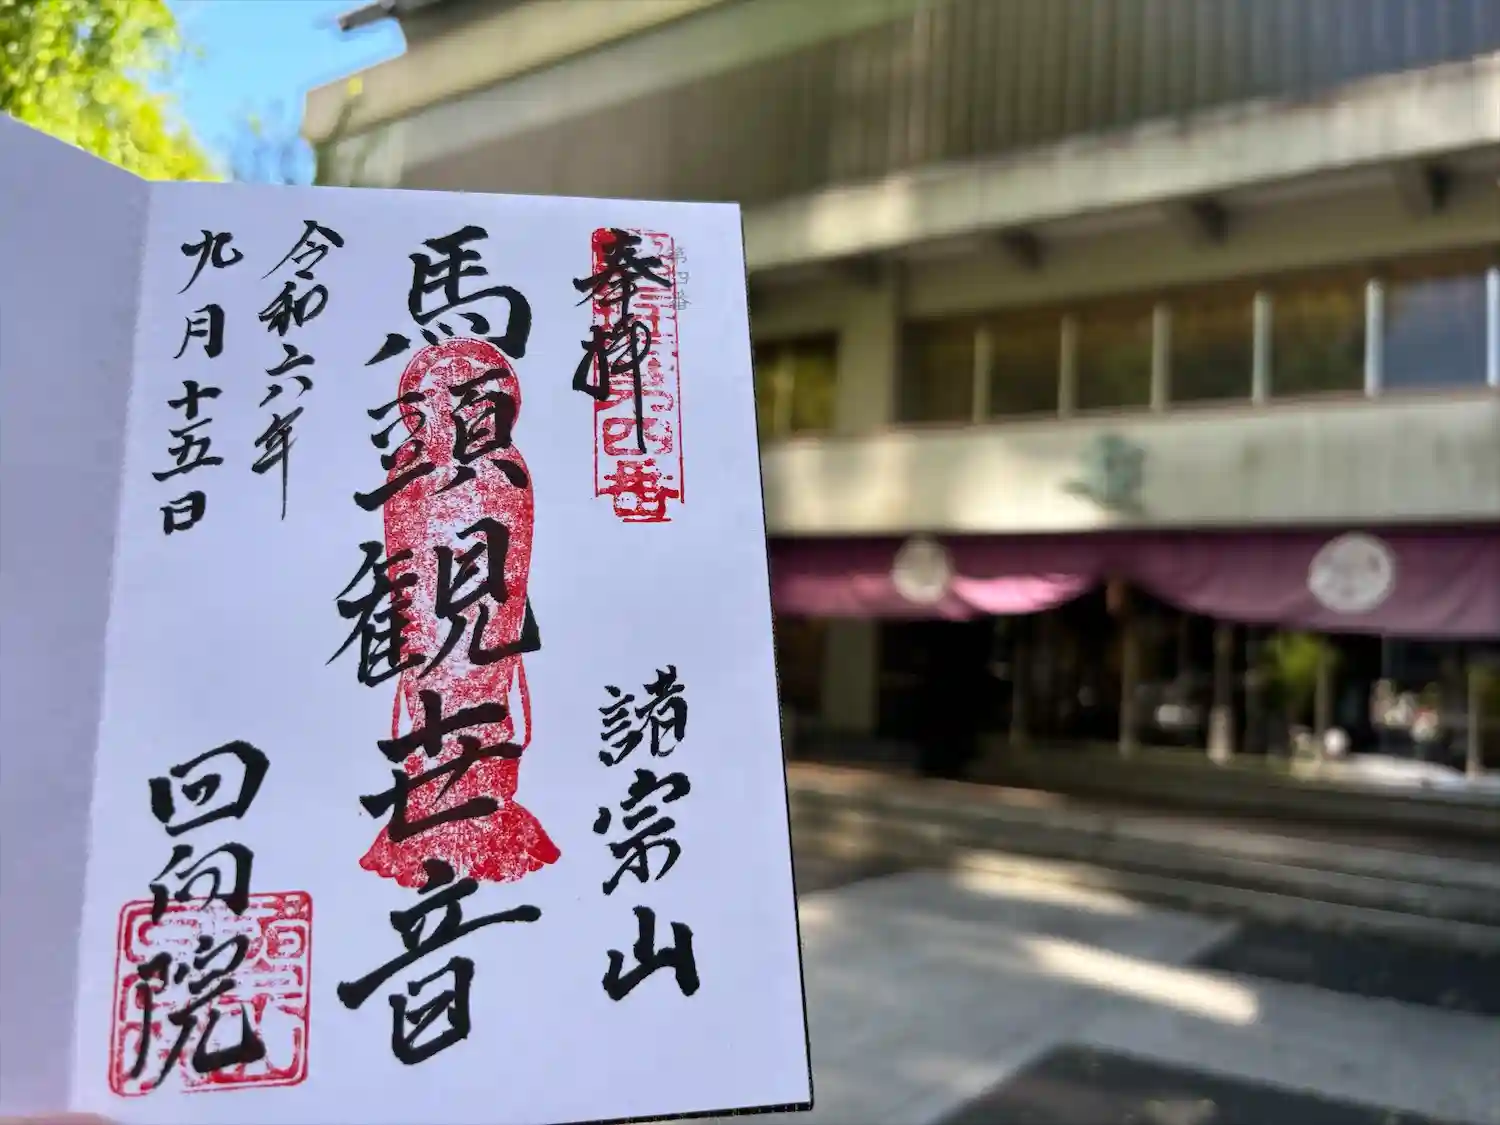 奉拝
第四番
諸宗山
馬頭観世音
令和六年
九月十五日
回向院